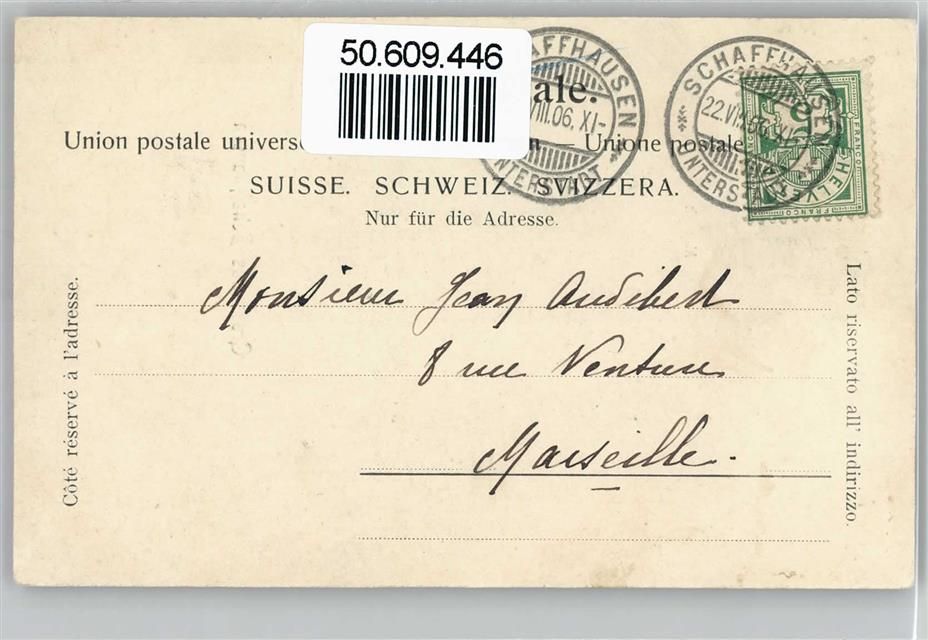 50.609.446
ale.
Union postale univers
n. — Unione postale
SUISSE. SCHWEIZ. SVIZZERA.
Nur für die Adresse.
AFFHAUSEN
VIII.06. XI-
UNTERSTADT
SCHAFFHAUSEN
22.VIII.06. XI-
UNTERSTADT
HELVETIA
FRANCO
FRANCO
5
Côté réservé à l'adresse.
Monsieur Jean Audibert
8 rue Venture
Marseille.
Lato riservato all' indirizzo.